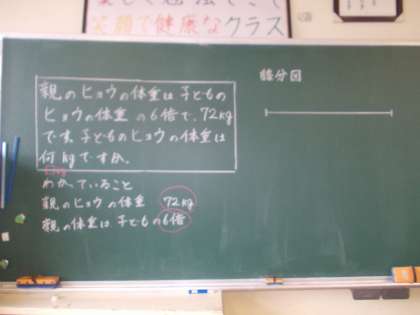 笑顔で健康なクラス
親のヒョウの体重は子どもの
ヒョウの体重の6倍で、72kg
です。子どものヒョウの体重は
何kgですか。
わかっていること
親のヒョウの体重 72kg
親の体重は子どもの6倍
線分図